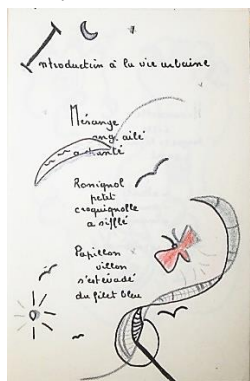 Introduction à la vie urbaine
Mésange
ang.ailé
a chanté
Rossignol
petit
croquignolle
a sifflé
Papillon
villon
s'est évadé
du filet bleu